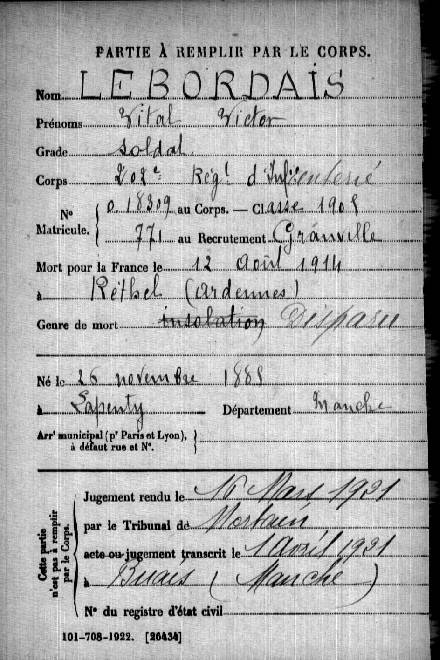 PARTIE À REMPLIR PAR LE CORPS.
Nom LEBORDAIS
Prénoms Vital Victor
Grade soldat
Corps 202e Régt d'Infanterie
N° Matricule. { 018309 au Corps. — Classe 1905
771 au Recrutement Granville
Mort pour la France le 12 Août 1914
à Réthel (Ardennes)
Genre de mort insolation Disparu
Né le 26 novembre 1885
à Lapenty Département Manche
Arrt municipal (pr Paris et Lyon), à défaut rue et N°. }
Cette partie n'est pas à remplir par le Corps.
Jugement rendu le 16 Mars 1921
par le Tribunal de Mortain
acte ou jugement transcrit le 1 avril 1921
à Buais (Manche)
N° du registre d'état civil
101-708-1922. [26434]